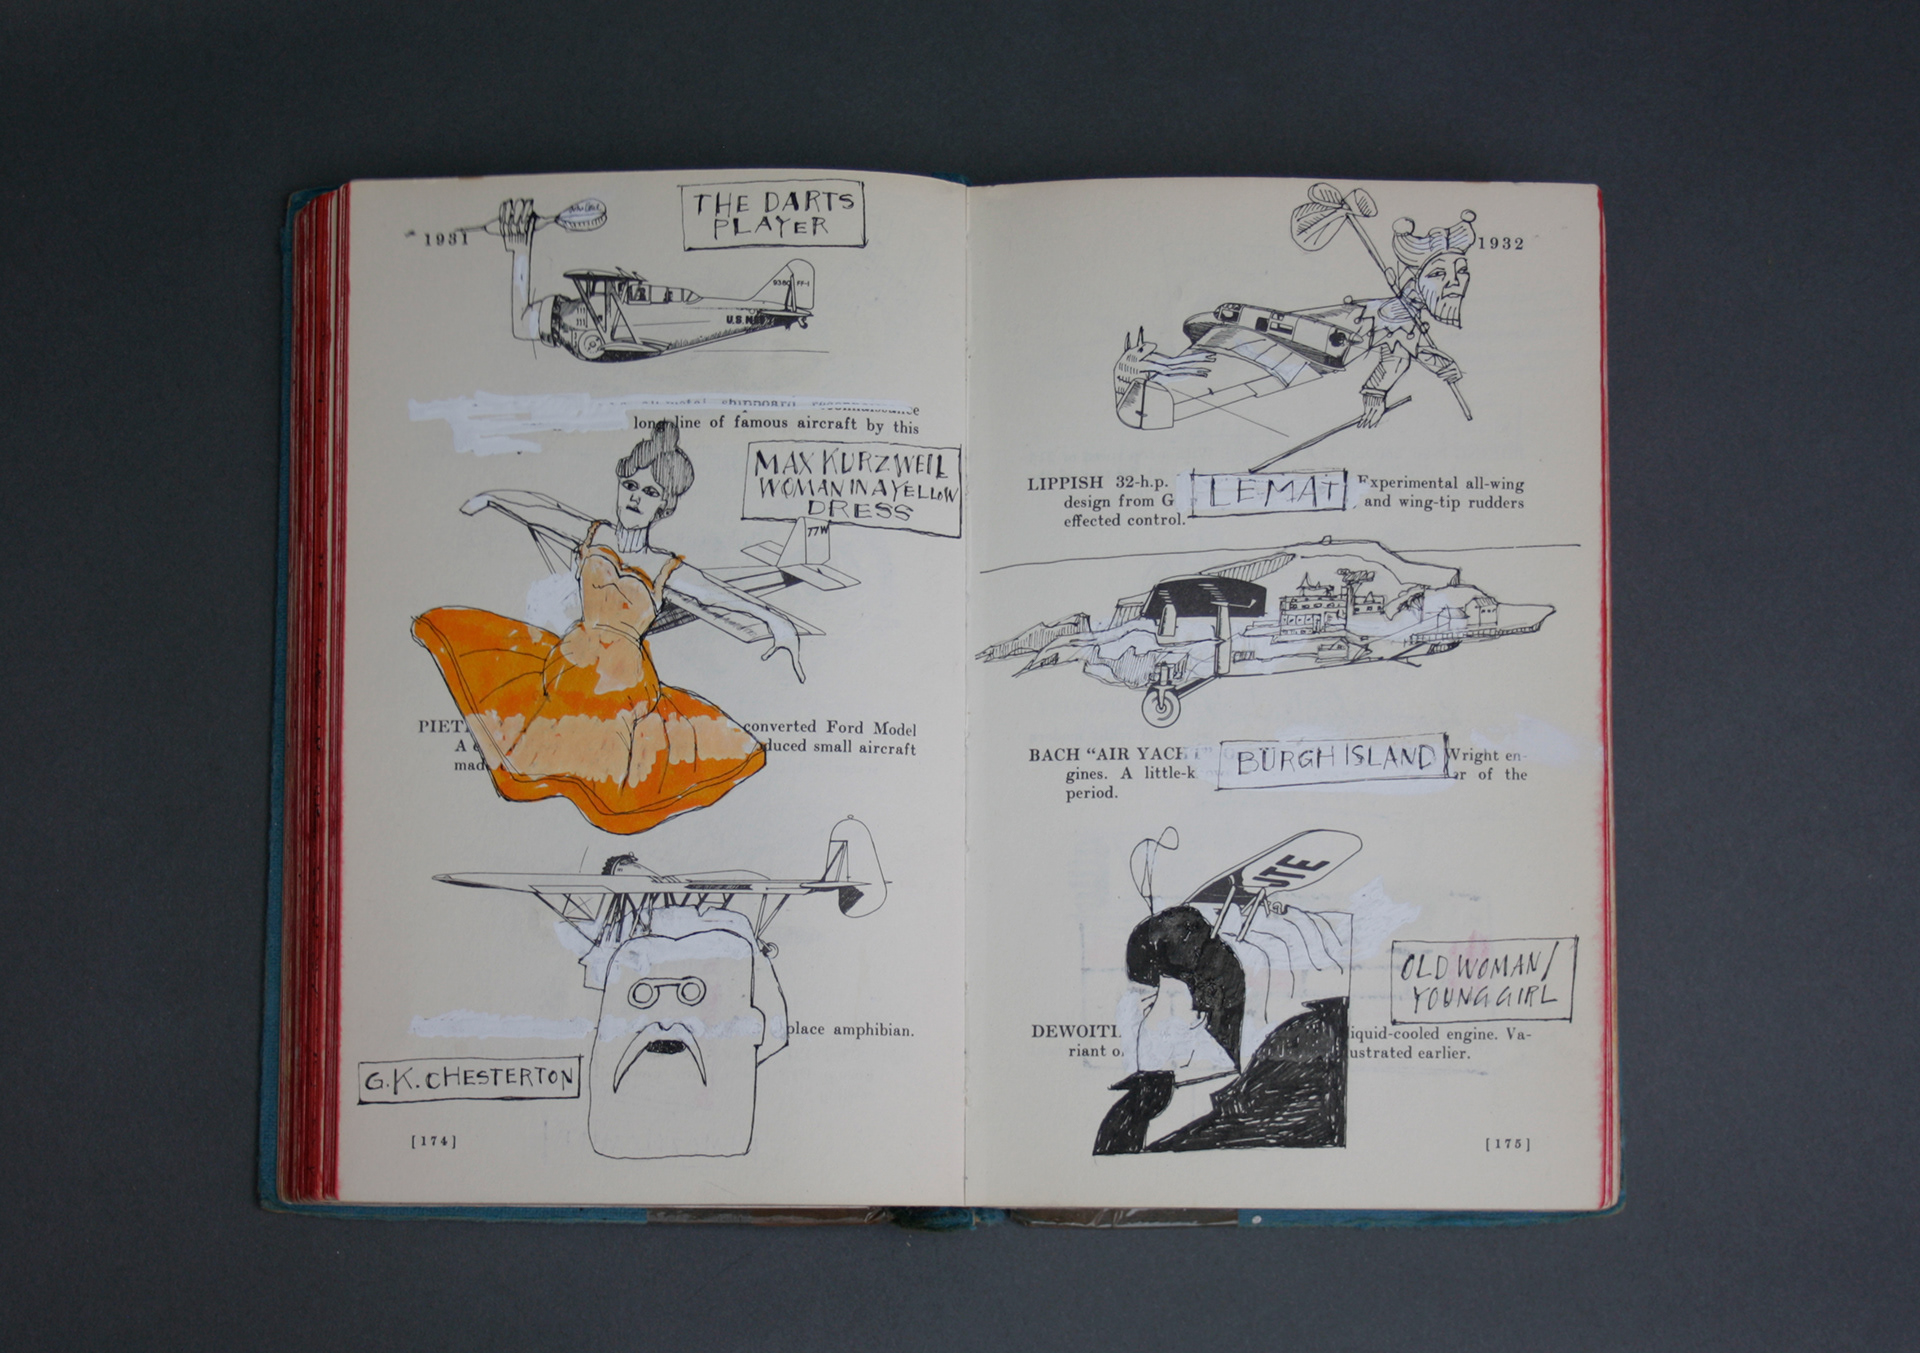 1931
THE DARTS
PLAYER
9380 FF-1
long line of famous aircraft by this
MAX KURZWEIL
WOMAN IN A YELLOW
DRESS
77W
PIET converted Ford Model
A duced small aircraft
mad
place amphibian.
G.K. CHESTERTON
[174]
1932
LIPPISH 32-h.p. LE MAT Experimental all-wing
design from G and wing-tip rudders
effected control.
BACH "AIR YACHT" BURGH ISLAND Wright en-
gines. A little-k of the
period.
UTE
OLD WOMAN/
YOUNG GIRL
DEWOITI liquid-cooled engine. Va-
riant o ustrated earlier.
[175]